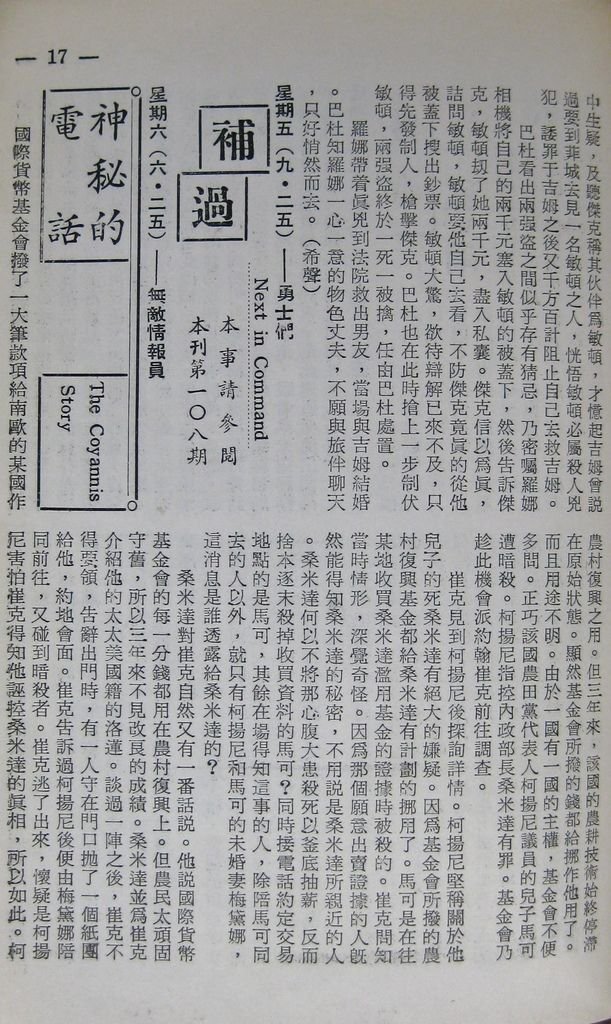 — 17 —
中生疑，及聽傑克稱其伙伴爲敏頓，才憶起吉姆曾說
過要到菲城去見一名敏頓之人，恍悟敏頓必屬殺人兇
犯，諉罪于吉姆之後又千方百計阻止自己去救吉姆。
巴杜看出兩强盜之間似乎存有猜忌，乃密囑羅娜
相機將自己的兩千元塞入敏頓的被蓋下，然後告訴傑
克，敏頓扨了她兩千元，盡入私囊。傑克信以爲眞，
詰問敏頓，敏頓要他自己去看，不防傑克竟眞的從他
被蓋下搜出鈔票。敏頓大驚，欲待辯解已來不及，只
得先發制人，槍擊傑克。巴杜也在此時搶上一步制伏
敏頓，兩强盜終於一死一被擒，任由巴杜處置。
羅娜帶着眞兇到法院救出男友，當場與吉姆結婚
。巴杜知羅娜一心一意的物色丈夫，不願與旅伴聊天
，只好悄然而去。（希聲）
星期五（九・二五）——勇士們
補過
Next in Command
本事請參閱
本刊第一〇八期
星期六（六・二五）——無敵情報員
神秘的
電話
The Coyannis
Story
國際貨幣基金會撥了一大筆款項給南歐的某國作
農村復興之用。但三年來，該國的農耕技術始終停滯
在原始狀態。顯然基金會所撥的錢都給挪作他用了。
而且用途不明。由於一國有一國的主權，基金會不便
多問。正巧該國農田黨代表人柯揚尼議員的兒子馬可
遭暗殺。柯揚尼指控內政部長桑米達有罪。基金會乃
趁此機會派約翰崔克前往調查。
崔克見到柯揚尼後探詢詳情。柯揚尼堅稱關於他
兒子的死桑米達有絕大的嫌疑。因爲基金會所撥的農
村復興基金都給桑米達有計劃的挪用了。馬可是在往
某地收買桑米達濫用基金的證據時被殺的。崔克問知
當時情形，深覺奇怪。因爲那個願意出賣證據的人旣
然能得知桑米達的秘密，不用說是桑米達所親近的人
。桑米達何以不將那心腹大患殺死以釜底抽薪，反而
捨本逐末殺掉收買資料的馬可？同時接電話約定交易
地點的是馬可，其餘在場得知這事的人，除陪馬可同
去的人以外，就只有柯揚尼和馬可的未婚妻梅黛娜，
這消息是誰透露給桑米達的？
桑米達對崔克自然又有一番話説。他說國際貨幣
基金會的每一分錢都用在農村復興上。但農民太頑固
守舊，所以三年來不見改良的成績。桑米達並爲崔克
介紹他的太太美國籍的洛蓮。談過一陣之後，崔克不
得要領，告辭出門時，有一人守在門口抛了一個紙團
給他，約地會面。崔克告訴過柯揚尼後便由梅黛娜陪
同前往，又碰到暗殺者。崔克逃了出來，懷疑是柯揚
尼害怕崔克得知他誣控桑米達的眞相，所以如此。柯